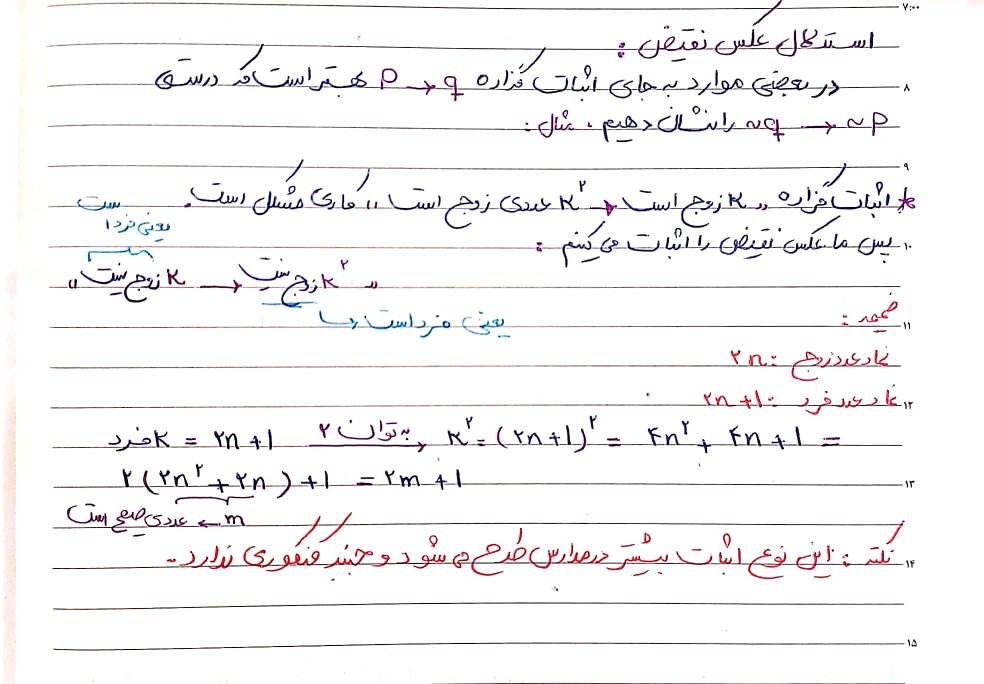 ۷:۰۰
استدلال عکس نقیض :
۸ در بعضی موارد به جای اثبات گزاره p → q بهتر است که درستی
~q → ~p را نشان دهیم . مثال :
۹
* اثبات گزاره « k زوج است → k² عددی زوج است » کاری مشکل است.
یعنی فرد است
۱۰ پس ما عکس نقیض را اثبات می کنیم :
« k² زوج نیست → k زوج نیست »
یعنی فرد است
۱۱ ضمیمه :
نماد عدد زوج : ۲n
۱۲ نماد عدد فرد : ۲n+۱
فرد k = ۲n+۱ به توان ۲ → k² = (۲n+۱)² = ۴n² + ۴n + ۱ =
۱۳ ۲(۲n² + ۲n) + ۱ = ۲m + ۱
m ← عددی صحیح است
۱۴ نکته : این نوع اثبات بیشتر در مدارس طرح می شود و جنبه کنکوری ندارد.
۱۵